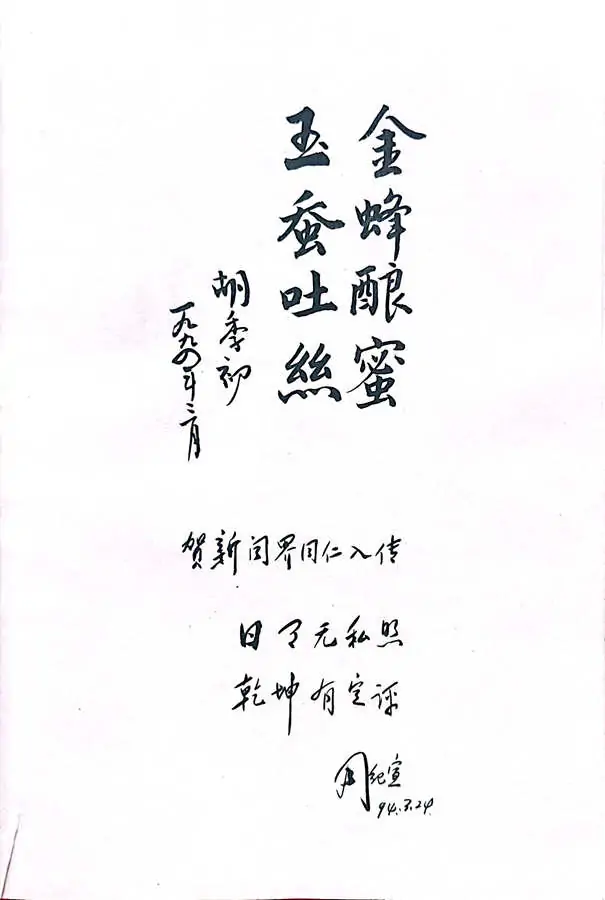 金蜂酿蜜
玉蚕吐絲
胡季初
一九九四年三月
贺新闻界同仁入传
日月无私照
乾坤有定评
周纪宣
94.3.24.